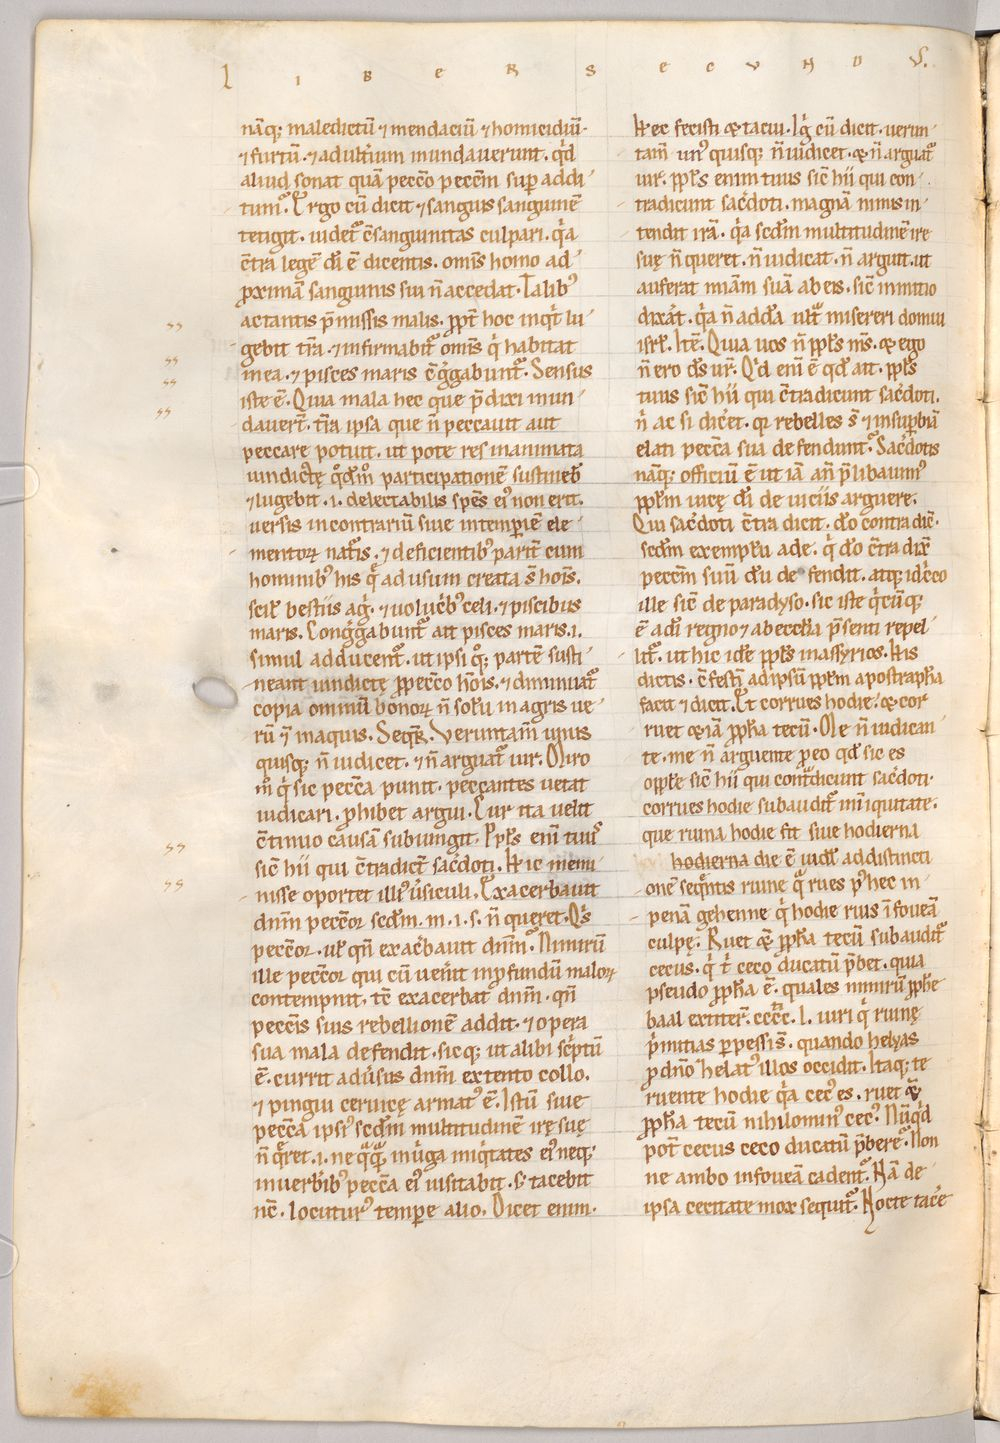 L I B E R S E C U N D U S.
nāq; maledictū ⁊ mendaciū ⁊ homicidiū.
⁊ furtū. ⁊ adult̄ium inundauerunt. qͥd
aliud sonat quā pecc̄o pecc̄m suꝑ addi
tum. Ergo cū dicit ⁊ sanguis sanguinē
tetigit. uidet᷑ c̄sanguinitas culpari. qͥa
c̄tra legē dī ē dicentis. omīs homo ad
ꝓximā sanguinis sui n̄ accedat. Talibꝰ
actantis p̄missis malis. ꝓpt̄ hoc inqͥt lu
gebit t̄ra. ⁊ infirmabit᷑ omīs qͥ habitat
in ea. ⁊ pisces maris c̄g̃gabunt᷑. Sensus
iste ē. Quia mala hec que p̄dixi inun
dauer̄t. t̄ra ipsa que n̄ peccauit aut
peccare potuit. ut pote res inanimata
uindictę qͦdm̄ participationē sustineb̄
⁊ lugebit .i. delectabilis spēs eiꝰ non erit.
uersis in contrariū siue intemꝑiē ele
mentoꝝ nat᷑is. ⁊ deficientibꝰ parit̄ cum
hominibꝰ his qͤ ad usum creata s̄ hoīs.
scił bestiis agͥ. ⁊ uolucͥbꝰ celi. ⁊ piscibus
maris. Cong̃gabunt᷑ ait pisces maris .i.
simul adducent᷑. ut ipsi qͦ; partē susti
neant uindictę ꝓ pecc̄o hōis. ⁊ diminuat᷑
copia omniū bonoꝝ n̄ solū in agris ue
rū ⁊ in aquis. Seqͥt᷑. Veruntam̄ unus
quisq; n̄ iudicet. ⁊ n̄ arguat᷑ uir. Miro
m̊ qͥ sic pecc̄a punit. peccantes uetat
iudicari. ꝓhibet argui. Cur ita uelit
c̄tinuo causā subiungit. Ppl̄s eni᷑ tuus
sic̄ hii qui c̄tradict̄ sac̄doti. Hic memi
nisse oportet illiꝰ ūsiculi. Exacerbauit
dn̄m pecc̄or scd̄m .m. i. s. n̄ queret. Qͥs
pecc̄or. uł qn̄ exac̄bauit dn̄m. Nimirū
ille pecc̄or qui cū uen̄it in ꝓfundū maloꝝ
contempnit, tc̄ exacerbat dn̄m. qn̄
pecc̄is suis rebellionē addit. ⁊ opera
sua mala defendit. sicq; ut alibi sc̄ptū
ē. currit aduͥsus dn̄m extento collo.
⁊ pingui ceruicę armatꝰ ē. Istū siue
pecc̄a ipsiꝰ scd̄m multitudinē irę suę
n̄ qͤret .i. neqͣqͣ in uͥga iniqͥtates eiꝰ neq;
in uerb̄ibꝰ pecc̄a eiꝰ uisitabit. s; tacebit
nc̄. locuturꝰ temꝑe alio. Dicet enim.
Hec fecisti & tacui. Igͥ cū dicit. uerun
tam̄ unꝰ quisq; n̄ iudicet. & n̄ arguat᷑
uir. ppl̄s enim tuus sic̄ hii qui con
tradicunt sac̄doti. magnā nimis in
tendit irā. qͥa scd̄m multitudinē ire
suę n̄ queret. n̄ iudicat. n̄ arguit. ut
auferat miām suā ab eis. sic̄ in initio
dixāt. qͥa n̄ add̄a ult᷑ misereri domui
isrł. Itē. Quia uos n̄ ppl̄s ms̄. & ego
n̄ ero dr̄s ur̄. Qͦd eni᷑ ē qd̄ ait. ppl̄s
tuus sic̄ hii qui c̄tradicunt sac̄doti.
nͥ ac si dic̄et. qꝛ rebelles s̄ ⁊ in suꝑbiā
elati pecc̄a sua defendunt᷑. Sac̄dotis
nāq; officiū ē ut iā an̄ p̄libauimꝰ
ppl̄m uice dī de uiciis arguere.
Qui sac̄doti c̄tra dicit. dō contra dic̄.
scd̄m exemplū ade. qͥ dō c̄tra dix̄
pecc̄m suū dū defendit. atq; idcͦco
ille sic̄ de paradyso. sic iste qͥcūq;
ē a dī regno ⁊ ab eccl̄ia p̄senti repel
lit᷑. ut hic idē ppl̄s in assyrios. His
dictis. c̄festī ad ipsū ppl̄m apostrapham
facit ⁊ dicit. Et corrues hodie. & cor
ruet & iā ꝓph̄a tecū. Me n̄ iudican
te. me n̄ arguente ꝑeo qd̄ sic es
opp̄le sic̄ hii qui cont᷑dicunt sac̄doti.
corrues hodie subaudit᷑ in iniquitate.
que ruina hodie fit siue hodierna
hodierna die ē uidł addistincti
onē seqͥntis ruine qͣ rues pꝰ hec in
penā gehenne qͥ hodie ruis ī foueā
culpę. Ruet & ꝓph̄a tecū subaudit᷑
cecus. qͥ t̄ ceco ducatū p̄bet. quia
pseudo ꝓph̄a ē. quales nimirū ꝓph̄e
baal extiter̄. cccc̄. l. uiri qͥ ruinę
pͥmitias ꝑpessi s̄. quando helyas
ꝓ dn̄o helatꝰ illos occidit. Itaq; te
ruente hodie qͥa cecꝰ es. ruet &
ꝓph̄a tecū nihilominꝰ cecꝰ. Nūqͥd
pot̄ cecus ceco ducatū p̄bere. Non
ne ambo in foueā cadent᷑. Nā de
ipsa cecitate mox sequit᷑. Nocte tac̄e